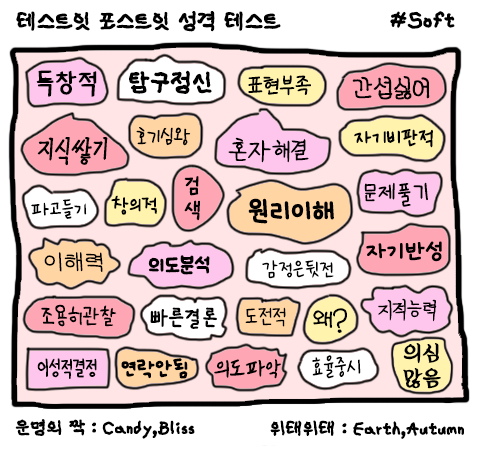 테스트잇 포스트잇 성격 테스트 #Soft
독창적 탐구정신 표현부족 간섭싫어
지식쌓기 호기심왕 혼자해결 자기비판적
파고들기 창의적 검색 원리이해 문제풀기
이해력 의도분석 감정은뒷전 자기반성
조용히관찰 빠른결론 도전적 왜? 지적능력
이성적결정 연락안됨 의도파악 효율중시 의심많음
운명의 짝 : Candy,Bliss 위태위태 : Earth,Autumn